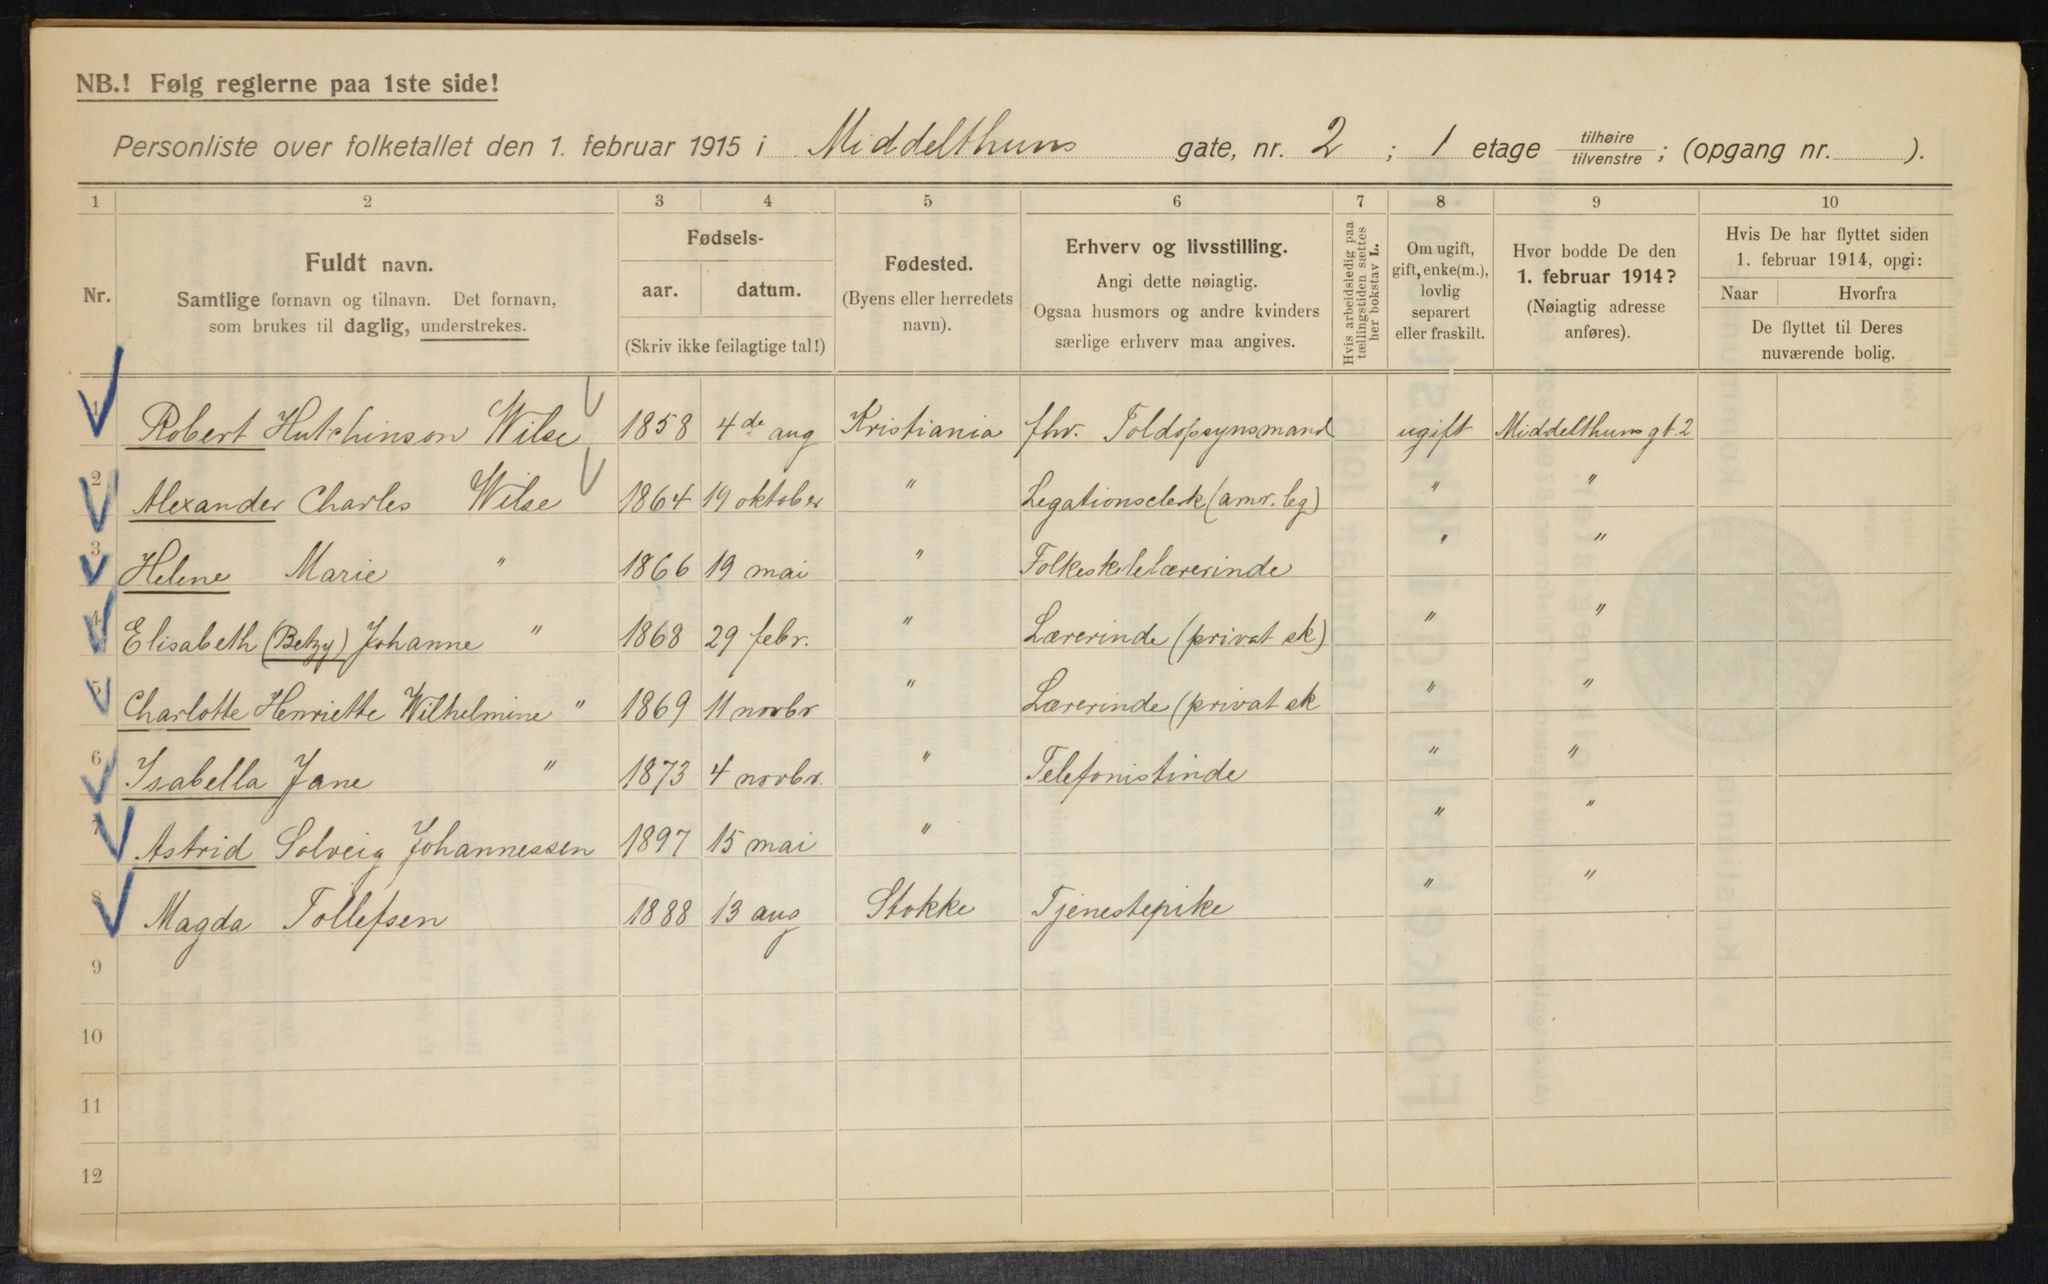 NB.! Følg reglerne paa 1ste side!
Personliste over folketallet den 1. februar 1915 i Middelthuns gate, nr. 2 ; 1 etage tilhøire / tilvenstre ; (opgang nr. ).
1 2 3 4 5 6 7 8 9 10
Nr.
Fuldt navn.
Samtlige fornavn og tilnavn. Det fornavn,
som brukes til daglig, understrekes.
Fødsels-
aar. datum.
(Skriv ikke feilagtige tal!)
Fødested.
(Byens eller herredets
navn).
Erhverv og livsstilling.
Angi dette nøiagtig.
Ogsaa husmors og andre kvinders
særlige erhverv maa angives.
Hvis arbeidsledig paa
tællingstiden sættes
her bokstav L.
Om ugift,
gift, enke(m.),
lovlig
separert
eller fraskilt.
Hvor bodde De den
1. februar 1914?
(Nøiagtig adresse
anføres).
Hvis De har flyttet siden
1. februar 1914, opgi:
Naar Hvorfra
De flyttet til Deres
nuværende bolig.
1 Robert Hutchinson Wilse 1858 4de aug Kristiania fhv. Toldopsynsmand ugift Middelthuns gt. 2
2 Alexander Charles Wilse 1864 19 oktober " Legationsclerk (amr. leg) " "
3 Helene Marie " 1866 19 mai " Folkeskolelærerinde " "
4 Elisabeth (Betzy) Johanne " 1868 29 febr. " Lærerinde (privat sk) " "
5 Charlotte Henriette Wilhelmine " 1869 11 novbr " Lærerinde (privat sk " "
6 Isabella Jane " 1873 4 novbr. " Telefonistinde " "
7 Astrid Solveig Johannessen 1897 15 mai " " "
8 Magda Tollefsen 1888 13 aug Stokke Tjenestepike " "
9
10
11
12